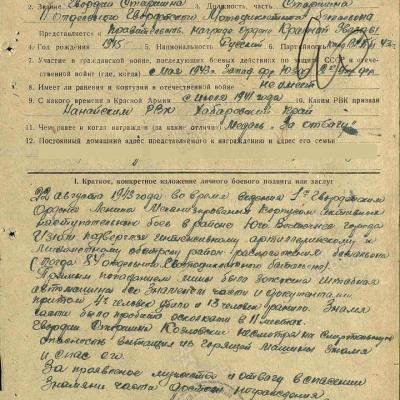 2. Звание Гвардии Старшина 3. Должность, часть Старшина
11 Отдельного Гвардейского Мотоциклетного батальона
Представляется к Правительств. награде Ордену Красной Звезды
4. Год рождения 1915 5. Национальность Русский 6. Партийность
7. Участие в гражданской войне, последующих боевых действиях по защите СССР и отечественной войне (где, когда) с мая 1943 г.
8. Имеет ли ранения и контузии в отечественной войне не имеет
9. С какого времени в Красной Армии с июля 1941 года 10. Каким РВК призван
Нанайским РВК Хабаровский Край
11. Чем ранее награжден (за какие отличия) Медаль „За отвагу"
12. Постоянный домашний адрес представляемого к награждению и адрес его семьи
I. Краткое, конкретное изложение личного боевого подвига или заслуг
22 августа 1943 года во время ведения 1м Гвардейским
Ордена Ленина Механизированным Корпусом активных
наступательных боев в районе Юго Восточнее города
Изюм подвергся интенсивному артиллерийскому и
минометному обстрелу район расположения батальона
(тогда 84 отдельного мотоциклетного батальона)
Прямым попаданием мины была зажжена штабная
автомашина со Знаменем части и документами
притом 4 человек убило и 13 человек ранило. Знамя
части было пробито осколками в 11 местах.
Гвардии Старшина Козловский несмотря на смертельную
опасность вытащил из горящей машины Знамя
и спас его.
За проявленное мужество и отвагу в спасении
Знамени части достоин награждения